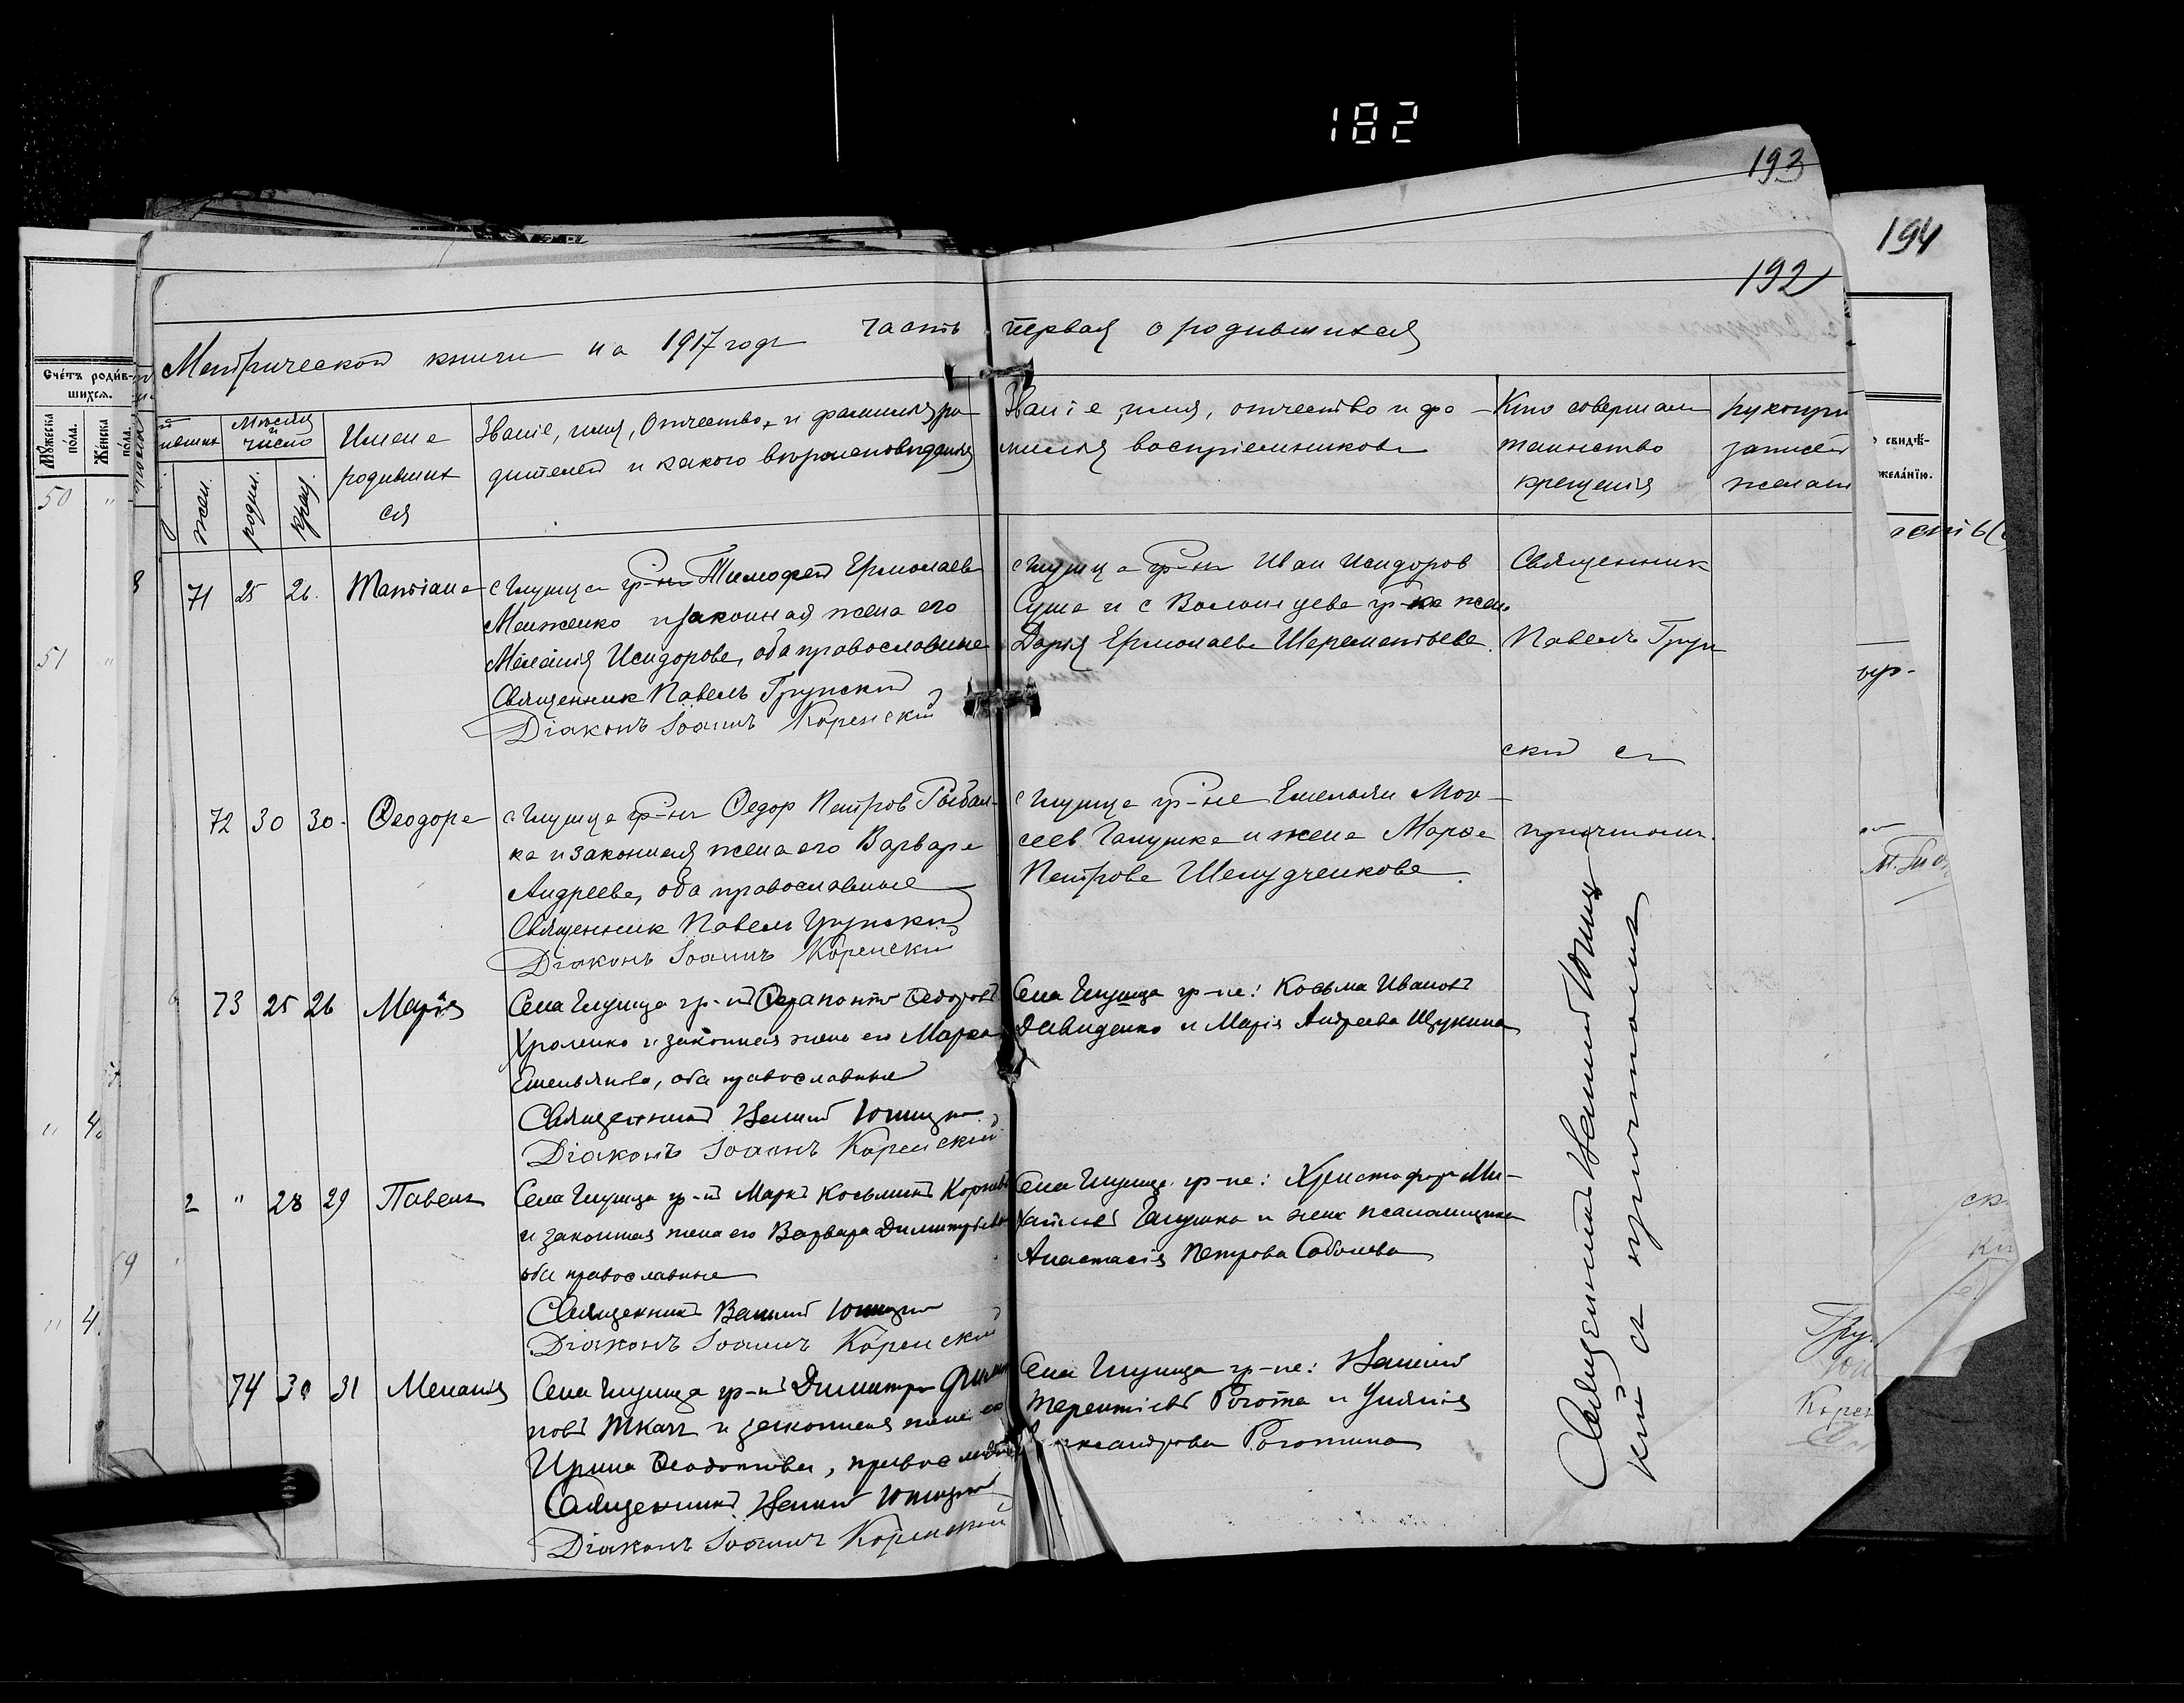 182
193
194
192
Метрической книги на 1917 годъ часть первая о родившихся
Счéтъ родив-
шихся.
Мужеска пола.
Женска пола.
Мѣсяц
и
число
жен.
родил.
крещ.
Имена
родивших
ся
Званіе, имя, отчество, и фамилия ро
дителей и какого вѣроисповѣдания
Званіе, имя, отчество и фа-
милия воспріемников
Кто совершал
таинство
крещенія
рукопри
записей
желан
свидѣ-
желáнїю.
50 "
51 "
71 25 26. Татіана
с Глушца гр-нъ Тимофей Ермолаев
Манженко и законная жена его
Меланія Исидорова, оба православные
Священник Павелъ Грунский
Діаконъ Іоаннъ Коренский
с Глушца гр-нъ Иван Исидоров
Суша и с Волынцева гр-ка жен.
Дарія Ермолаева Шереметьева.
Священник
Павелъ Грун
ский съ
причтомъ.
72 30 30. Ѳеодора
с Глушца гр-нъ Ѳедор Петров Рыбал-
ка и законная жена его Варвара
Андреева, оба православные
Священник Павелъ Грунский
Діаконъ Іоаннъ Коренский
с Глушца гр-не Емельян Мои-
сеев Галушка и жена Марѳа
Петрова Шелудченкова.
73 25 26 Марія
Села Глушца гр-нъ Ѳерапонтъ Ѳедоровъ
Хроленко и законная жена его Марѳа
Емельянова, оба православные
Священникъ
Діаконъ Іоаннъ Коренский
Села Глушца гр-не: Косьма Ивановъ
Давиденко и Марія Андреева Щукина
2 " 28 29 Павелъ
Села Глушца гр-нъ Маркъ Косьминъ
и законная жена его Варвара Димитріева
оба православные
Священникъ
Діаконъ Іоаннъ Коренский
Села Глушца гр-не: Христофоръ Ми-
хайловъ Галушка и жена псаломщика
Анастасія Петрова Соболева
74 30 31 Меланія
Села Глушца гр-нъ Димитрій
повъ Ткачъ и законная жена его
Ирина Ѳеодотова, православные
Священникъ
Діаконъ Іоаннъ Коренский
Села Глушца гр-не: Василій
Терентіевъ Рогота и
Александрова Роготина
Священникъ Василій
кій съ причтомъ